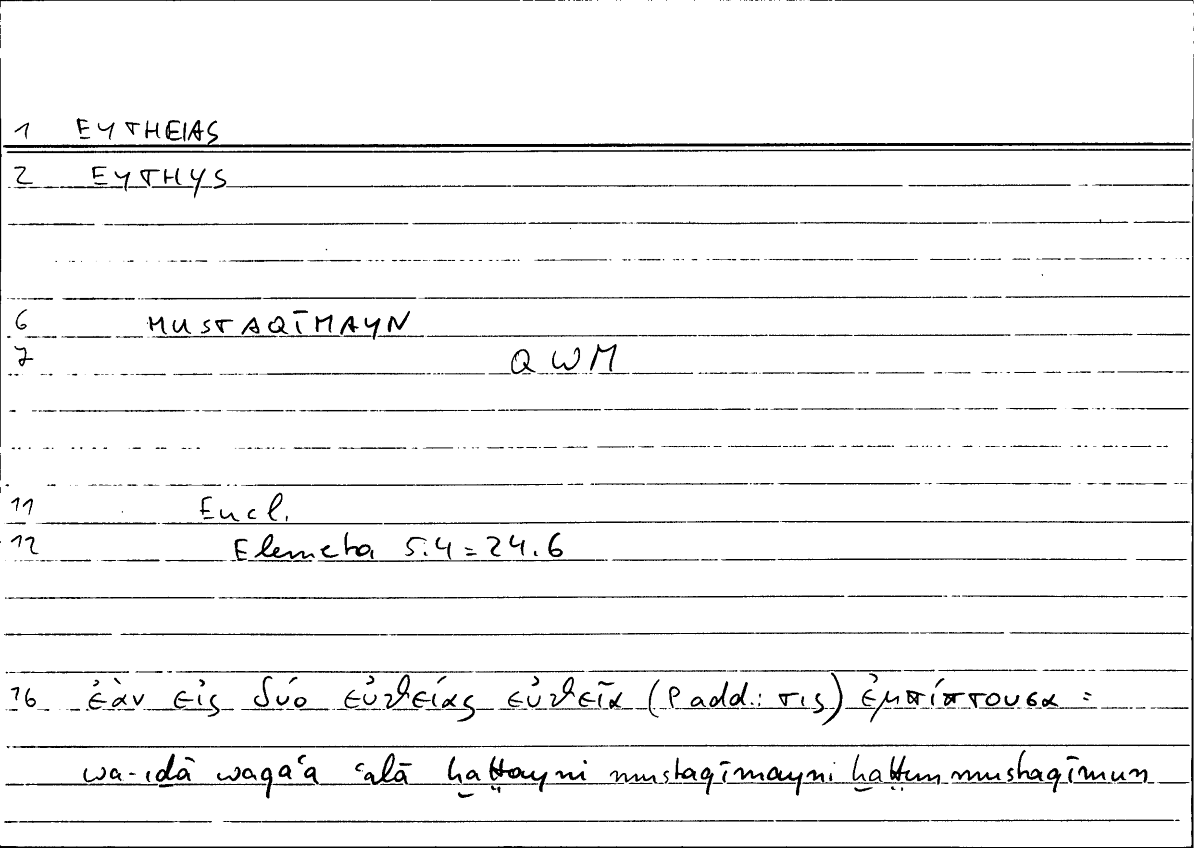 1 EYTHEIAS
2 EYTHYS
6 MUSTAQĪMAYN
7 QWM
11 Eucl.
12 Elementa 5.4 = 24.6
16 ἐὰν εἰς δύο εὐθείας εὐθεῖα (P add.: τις) ἐμπίπτουσα =
wa-iḏā waqaʿa ʿalā ḫaṭṭayni mustaqīmayni ḫaṭṭun mustaqīmun